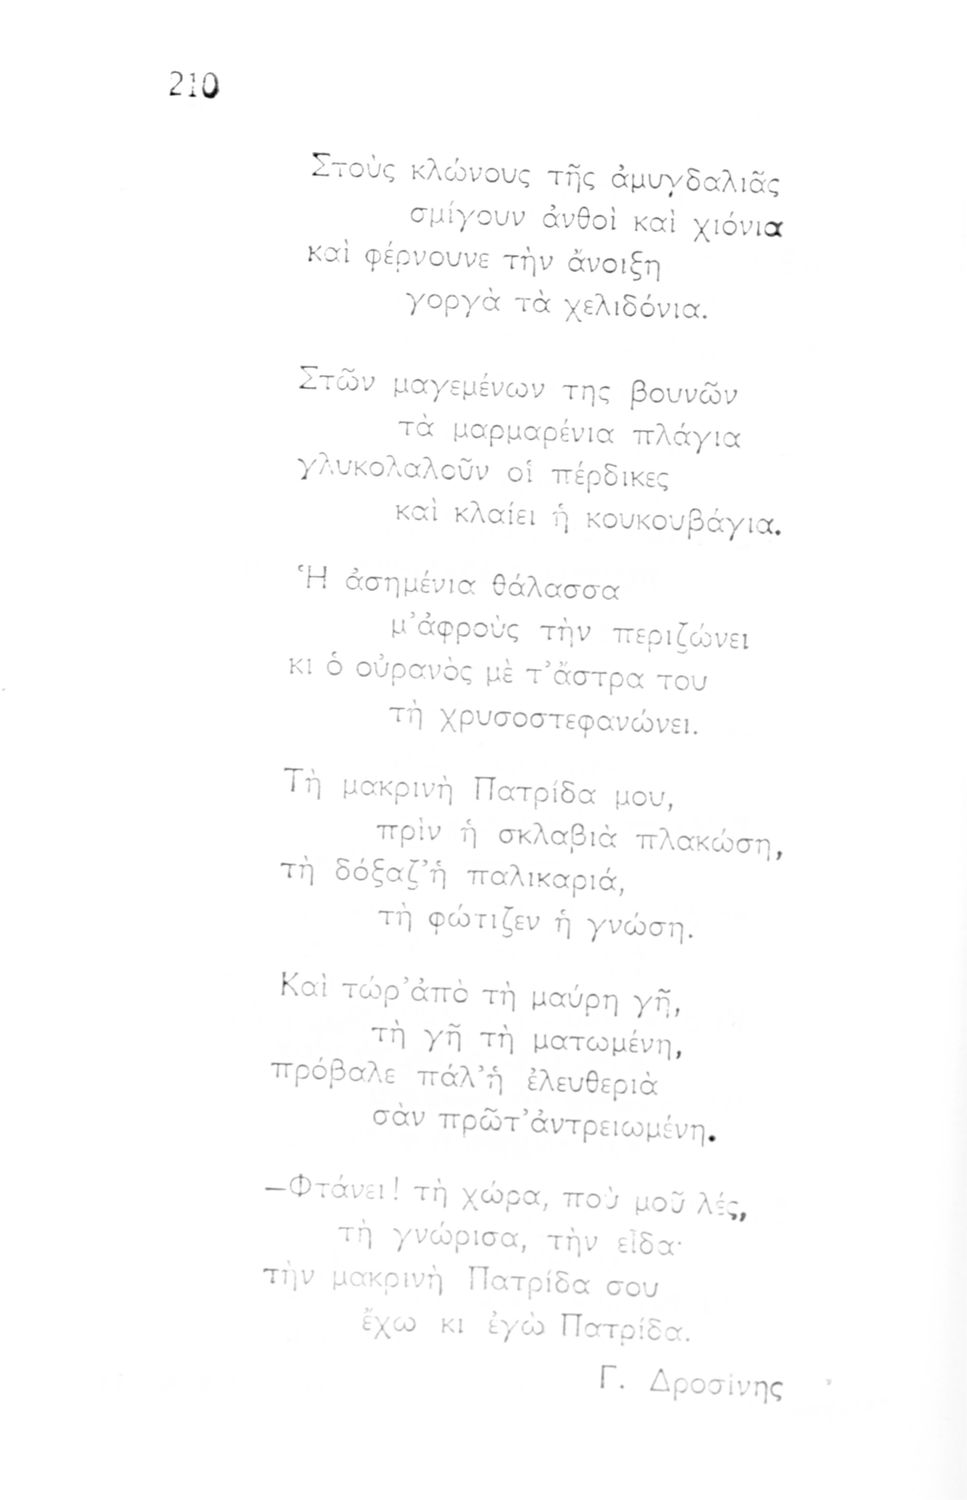 210
Στοὺς κλώνους τῆς ἀμυγδαλιᾶς
σμίγουν ἀνθοὶ καὶ χιόνια
καὶ φέρνουνε τὴν ἄνοιξη
γοργὰ τὰ χελιδόνια.
Στῶν μαγεμένων της βουνῶν
τὰ μαρμαρένια πλάγια
γλυκολαλοῦν οἱ πέρδικες
καὶ κλαίει ἡ κουκουβάγια.
Ἡ ἀσημένια θάλασσα
μ'ἀφροὺς τὴν περιζώνει
κι ὁ οὐρανὸς μὲ τ'ἄστρα του
τὴ χρυσοστεφανώνει.
Τὴ μακρινὴ Πατρίδα μου,
πρὶν ἡ σκλαβιὰ πλακώση,
τὴ δόξαζ'ἡ παλικαριά,
τὴ φώτιζεν ἡ γνώση.
Καὶ τώρ'ἀπὸ τὴ μαύρη γῆ,
τὴ γῆ τὴ ματωμένη,
πρόβαλε πάλ'ἡ ἐλευθεριὰ
σὰν πρῶτ'ἀντρειωμένη.
—Φτάνει! τὴ χώρα, ποὺ μοῦ λές,
τὴ γνώρισα, τὴν εἶδα·
τὴν μακρινὴ Πατρίδα σου
ἔχω κι ἐγὼ Πατρίδα.
Γ. Δροσίνης